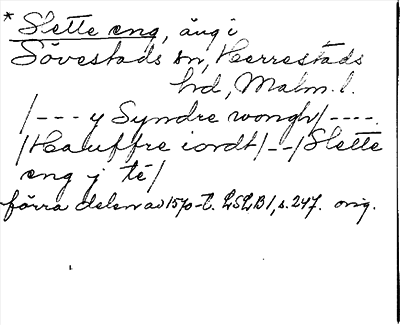 * Slette eng, äng i
Sövestads sn, Herrestads
hd, Malm. l.
/--- y Syndre wongh/----.
/Hauffre iordt/--/Slette
eng j té/
förra delen av 1570-t. LSLB1, s. 247. orig.